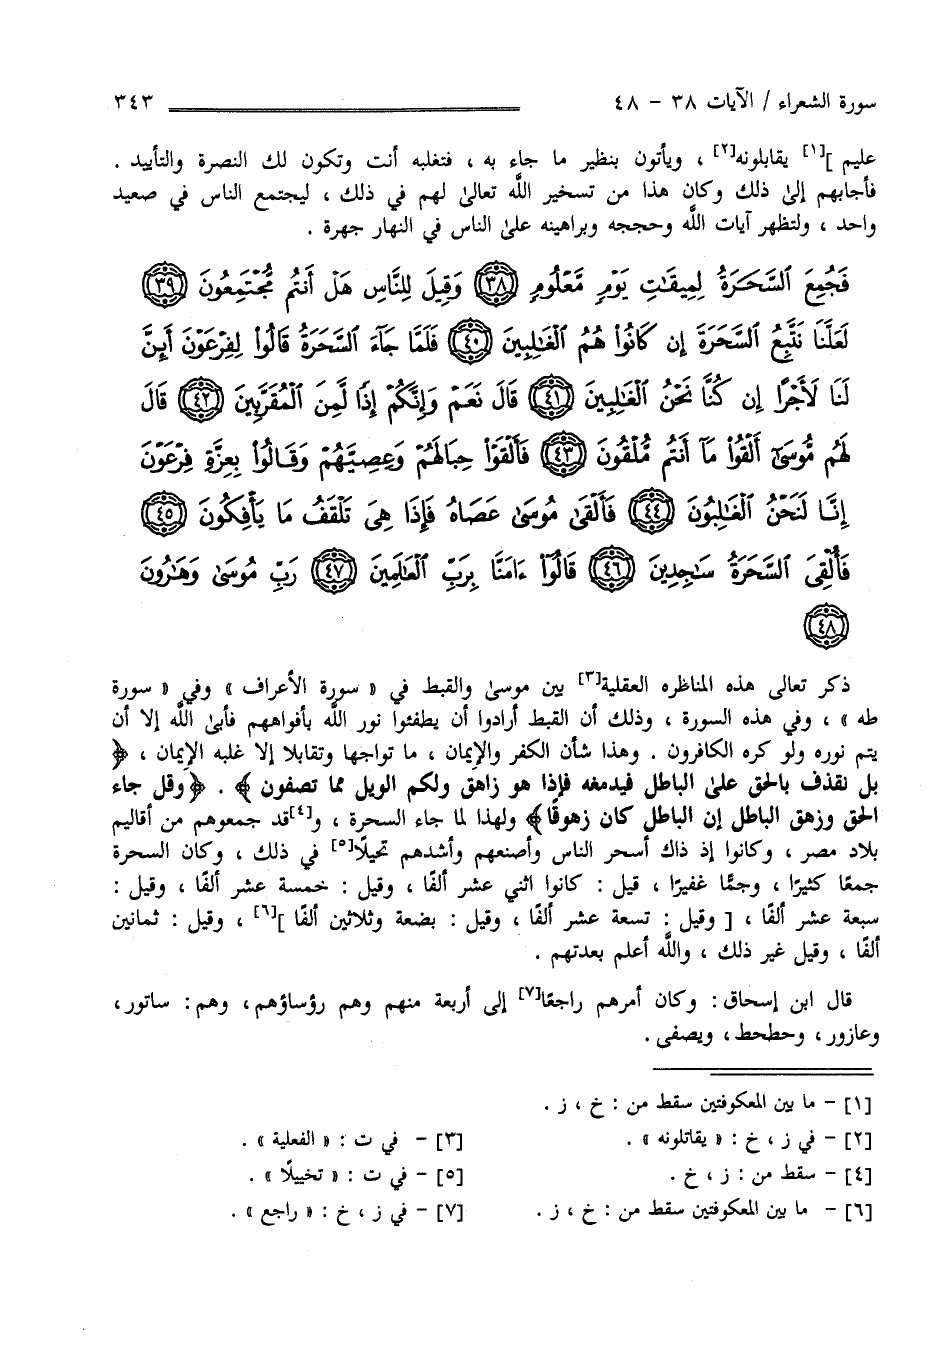 سورة الشعراء / الآيات ٣٨ - ٤٨ ٣٤٣
عليم ][١] يقابلونه[٢] ، ويأتون بنظير ما جاء به ، فتغلبه أنت وتكون لك النصرة والتأييد .
فأجابهم إلىٰ ذلك وكان هذا من تسخير اللَّه تعالىٰ لهم في ذلك ، ليجتمع الناس في صعيد
واحد ، ولتظهر آيات اللَّه وحججه وبراهينه علىٰ الناس في النهار جهرة .
فَجُمِعَ ٱلسَّحَرَةُ لِمِيقَٰتِ يَوْمٍ مَّعْلُومٍ ﴿٣٨﴾ وَقِيلَ لِلنَّاسِ هَلْ أَنتُم مُّجْتَمِعُونَ ﴿٣٩﴾
لَعَلَّنَا نَتَّبِعُ ٱلسَّحَرَةَ إِن كَانُوا۟ هُمُ ٱلْغَٰلِبِينَ ﴿٤٠﴾ فَلَمَّا جَآءَ ٱلسَّحَرَةُ قَالُوا۟ لِفِرْعَوْنَ أَئِنَّ
لَنَا لَأَجْرًا إِن كُنَّا نَحْنُ ٱلْغَٰلِبِينَ ﴿٤١﴾ قَالَ نَعَمْ وَإِنَّكُمْ إِذًا لَّمِنَ ٱلْمُقَرَّبِينَ ﴿٤٢﴾ قَالَ
لَهُم مُّوسَىٰٓ أَلْقُوا۟ مَآ أَنتُم مُّلْقُونَ ﴿٤٣﴾ فَأَلْقَوْا۟ حِبَالَهُمْ وَعِصِيَّهُمْ وَقَالُوا۟ بِعِزَّةِ فِرْعَوْنَ
إِنَّا لَنَحْنُ ٱلْغَٰلِبُونَ ﴿٤٤﴾ فَأَلْقَىٰ مُوسَىٰ عَصَاهُ فَإِذَا هِىَ تَلْقَفُ مَا يَأْفِكُونَ ﴿٤٥﴾
فَأُلْقِىَ ٱلسَّحَرَةُ سَٰجِدِينَ ﴿٤٦﴾ قَالُوٓا۟ ءَامَنَّا بِرَبِّ ٱلْعَٰلَمِينَ ﴿٤٧﴾ رَبِّ مُوسَىٰ وَهَٰرُونَ
﴿٤٨﴾
ذكر تعالى هذه المناظره العقلية[٣] بين موسىٰ والقبط في « سورة الأعراف » وفي « سورة
طه » ، وفي هذه السورة ، وذلك أن القبط أرادوا أن يطفئوا نور اللَّه بأفواههم فأبىٰ اللَّه إلا أن
يتم نوره ولو كره الكافرون . وهذا شأن الكفر والإيمان ، ما تواجها وتقابلا إلا غلبه الإيمان ، ﴿
بل نقذف بالحق علىٰ الباطل فيدمغه فإذا هو زاهق ولكم الويل مما تصفون ﴾ . ﴿وقل جاء
الحق وزهق الباطل إن الباطل كان زهوقًا﴾ ولهذا لما جاء السحرة ، و[٤]قد جمعوهم من أقاليم
بلاد مصر ، وكانوا إذ ذاك أسحر الناس وأصنعهم وأشدهم تخيلًا[٥] في ذلك ، وكان السحرة
جمعًا كثيرًا ، وجمًّا غفيرًا ، قيل : كانوا اثني عشر ألفًا ، وقيل : خمسة عشر ألفًا ، وقيل :
سبعة عشر ألفًا ، [ وقيل : تسعة عشر ألفًا ، وقيل : بضعة وثلاثين ألفًا ][٦] ، وقيل : ثمانين
ألفًا ، وقيل غير ذلك ، واللَّه أعلم بعدتهم .
قال ابن إسحاق : وكان أمرهم راجعًا[٧] إلى أربعة منهم وهم رؤساؤهم، وهم: ساتور،
وعازور، وحطحط، ويصفى .
[١] - ما بين المعكوفتين سقط من : خ ، ز .
[٢] - في ز ، خ : « يقاتلونه » . [٣] - في ت : « الفعلية » .
[٤] - سقط من : ز ، خ . [٥] - في ت : « تخييلًا » .
[٦] - ما بين المعكوفتين سقط من : خ ، ز . [٧] - في ز ، خ : « راجع » .